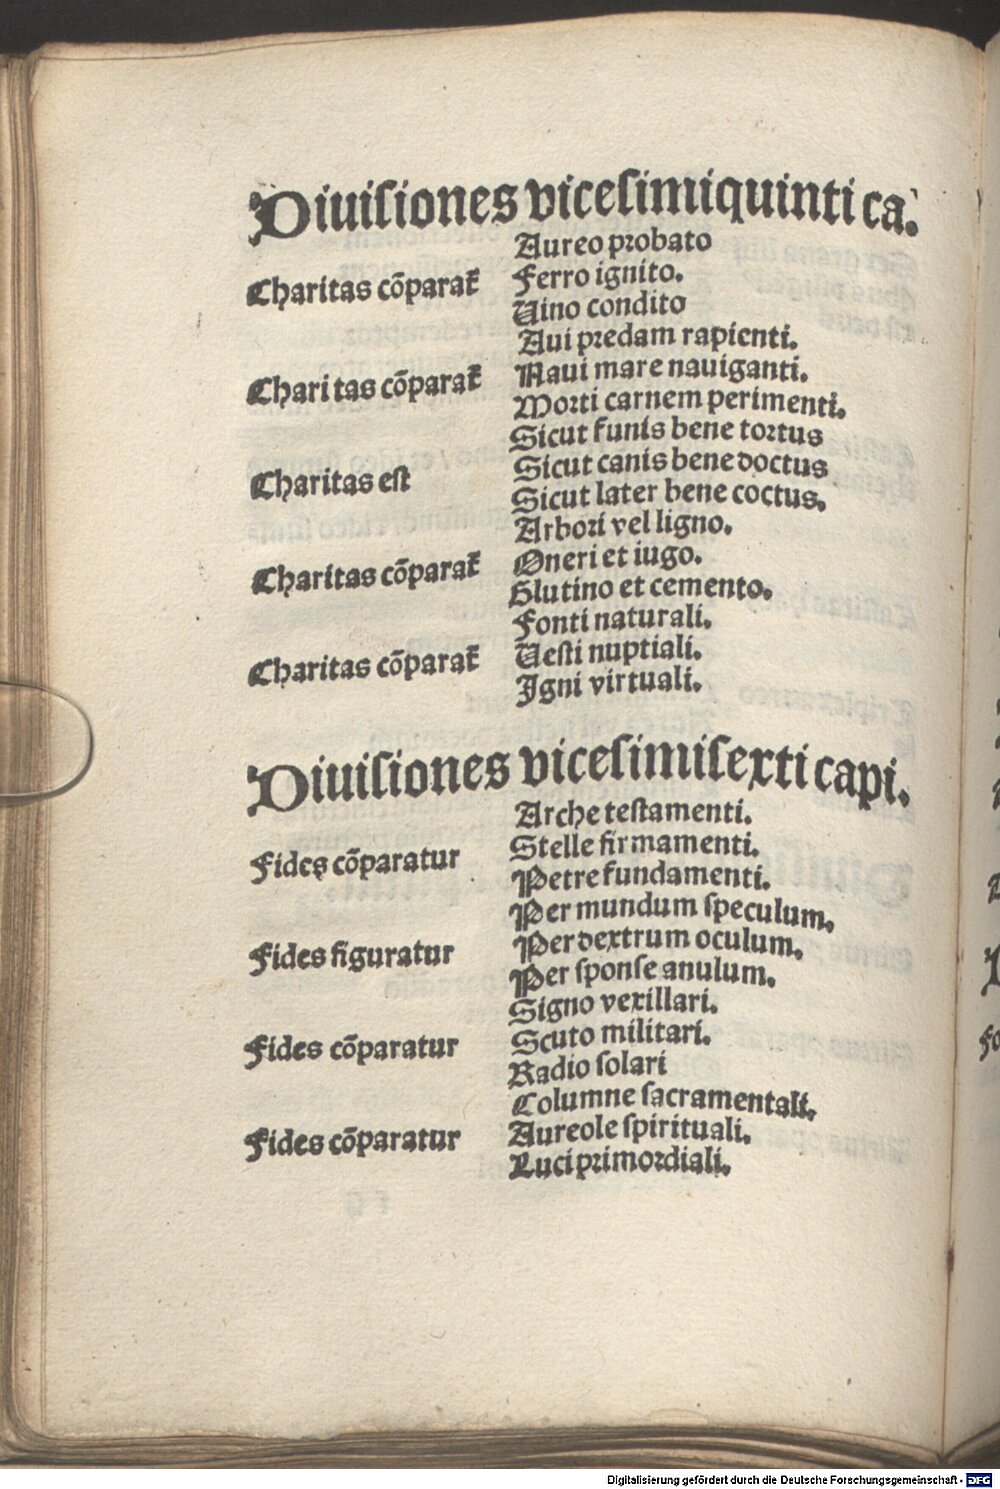 Diuiſiones viceſimiquinti ca.
Aureo probato
Charitas cōparat̄ Ferro ignito.
Uino condito
Aui predam rapienti.
Charitas cōparat̄ Naui mare nauiganti.
Morti carnem perimenti.
Sicut funis bene tortus
Charitas eſt Sicut canis bene doctus
Sicut later bene coctus.
Arbori vel ligno.
Charitas cōparat̄ Oneri et iugo.
Glutino et cemento.
Fonti naturali.
Charitas cōparat̄ Ueſti nuptiali.
Igni virtuali.
Diuiſiones viceſimiſexti capi.
Arche teſtamenti.
Fides cōparatur Stelle firmamenti.
Petre fundamenti.
Per mundum ſpeculum.
Fides figuratur Per dextrum oculum.
Per ſponſe anulum.
Signo vexillari.
Fides cōparatur Scuto militari.
Radio ſolari
Columne ſacramentali.
Fides cōparatur Aureole ſpirituali.
Luci primordiali.
Digitalisierung gefördert durch die Deutsche Forschungsgemeinschaft - DFG